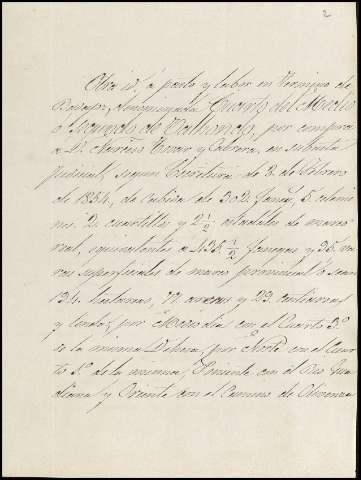 2
Otra id. a pasto y labor en término de
Badajoz, denominada Cuarto del Medio
o Segundo de Valhondo, por compra
a D. Narciso Tovar y Cabrera, en subasta
judicial, según Escritura de 8. de Febrero
de 1854, de cabida de 302. fanegs. 5. celemi
nes 2. cuartillos y 2 1/2 estadales de marco
real, equivalentes a 435. 1/2 fanegas y 36. va
ras superficiales de marco provincial ó sean
194. hectareas, 77. areas y 29. centiareas
y linda, por Medio dia con el Cuarto 3º
de la misma Dehesa, por Norte con el Cuar
to 1º de la misma, Poniente con el Rio Gua
diana y Oriente con el Camino de Olivenza